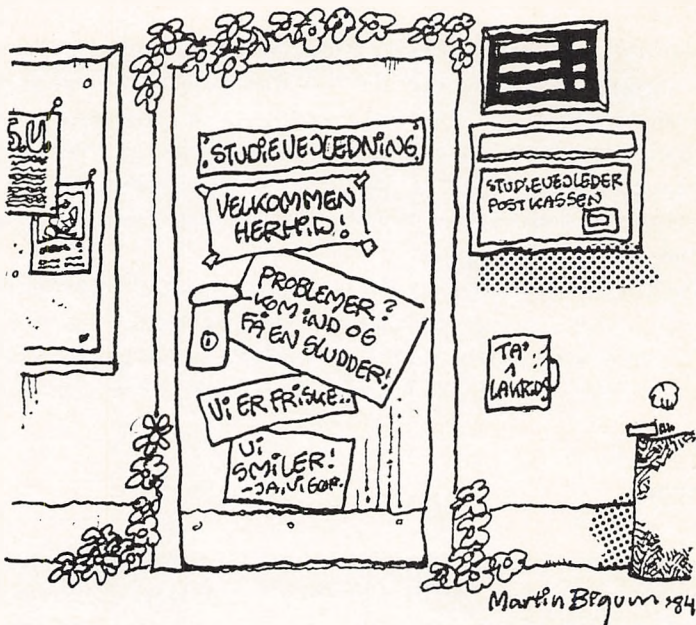 S.U.
STUDIEVEJLEDNING
VELKOMMEN
HERHID!
PROBLEMER?
KOM IND OG
FÅ EN SLUDDER!
VI ER FRISKE..
VI
SMILER!
-JA, VI GØR.
STUDIEVEJLEDER
POSTKASSEN
TA'
1
LAKRIDS
Martin Bigum '84